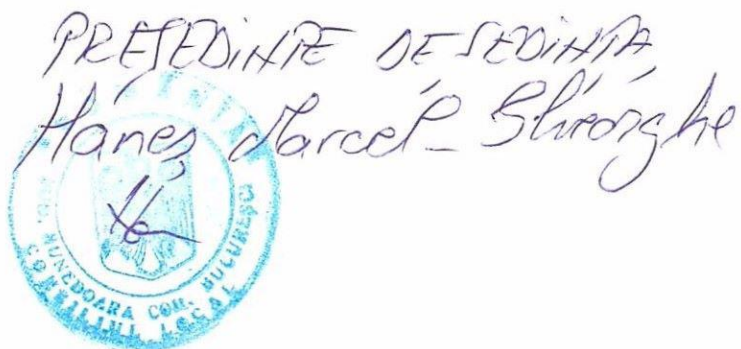 PREȘEDINTE DE ȘEDINȚĂ,
Haneș Marcel-Gheorghe
ROMÂNIA
JUD. HUNEDOARA COM. BUCUREȘCI
CONSILIUL LOCAL